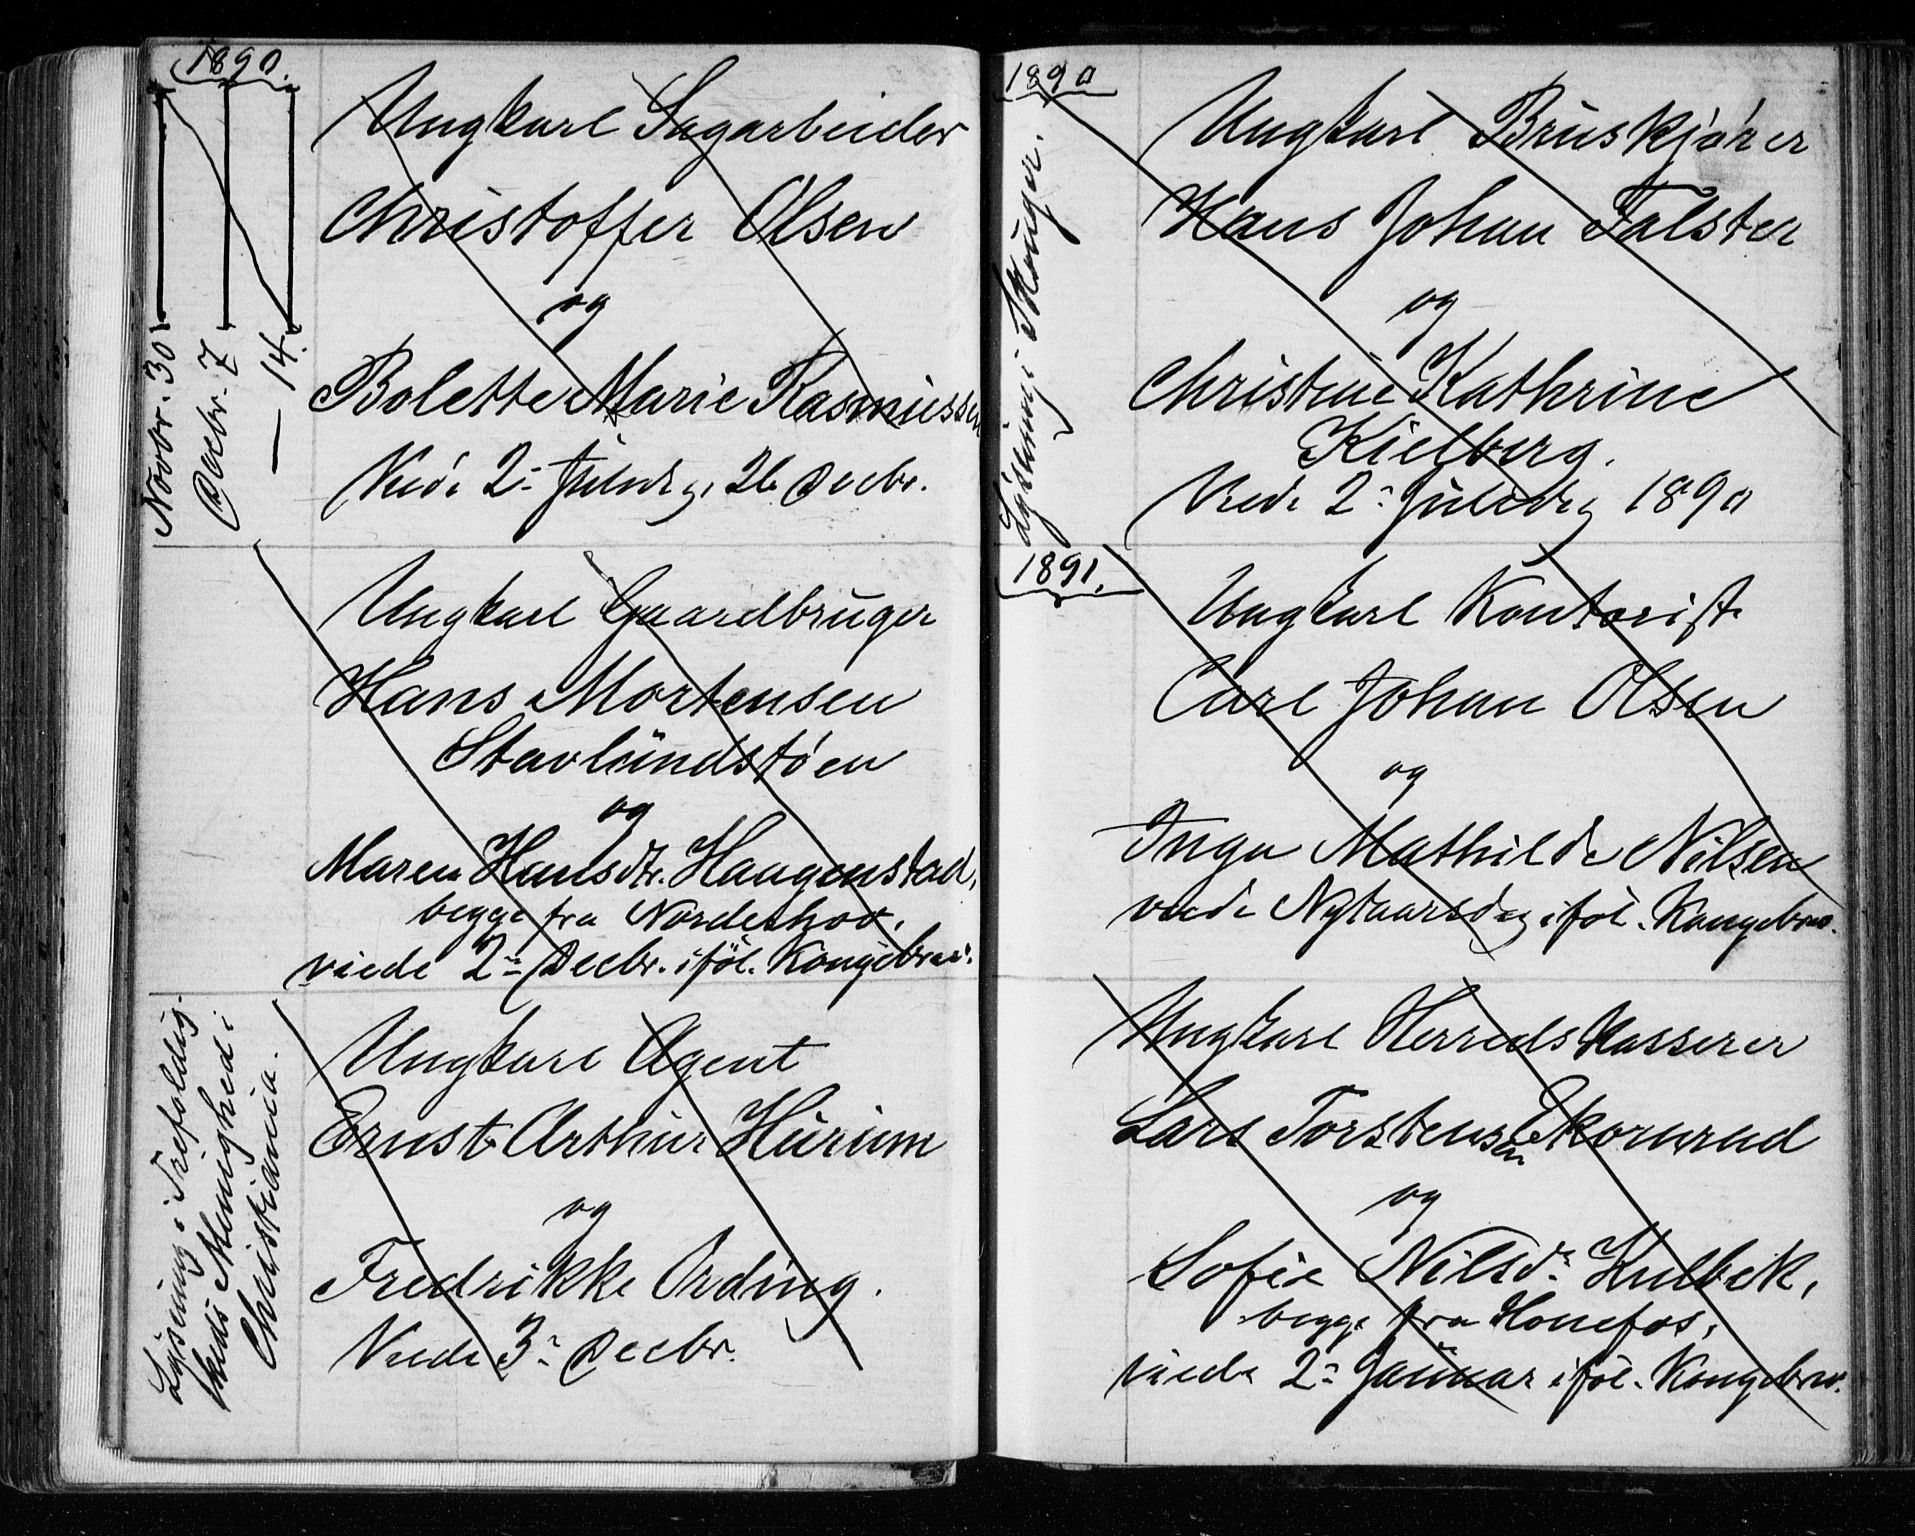 1890.
Novbr. 30
Decbr. 7
— 14.
Ungkarl Sagarbeider
Christoffer Olsen
og
Bolette Marie Rasmussen
Viede 2- Juledg. 26 Decbr.
Ungkarl Gaardbruger
Hans Mortensen
Stavlundstøen
og
Maren Hansdtr. Haugenstad,
begge fra Norderhov.
viede 2- Decbr. iføl. Kongebrev.
Lysning i Trefoldig-
heds Menighed i
Christiania.
Ungkarl Agent
Ernst Arthur Hurum
og
Fredrikke Ording.
Viede 3- Decbr.
1890
Lysning i Skouger.
Ungkarl Bruskjører
Hans Johan Falster
og
Christine Kathrine
Kielberg.
Viede 2- Juledg 1890
1891.
Ungkarl Kontorist
Carl Johan Olsen
og
Inga Mathilde Nilsen
viede Nytaarsdag iføl. Kongebrev.
Ungkarl Herredskasserer
Lars Torstensen
og
Sofie Nilsdr. Kulbek,
begge fra Honefos,
viede 2- Januar iføl. Kongebrev.